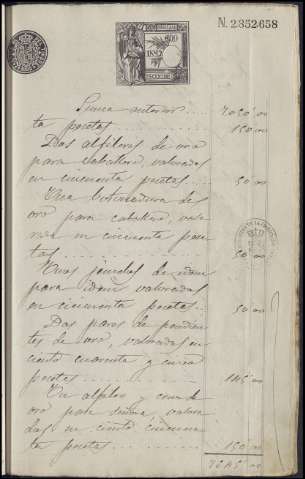 N. 2.852.658
Suma anterior .... 7.050,00
ta pesetas ..... 150,00
Dos alfileres de oro
para caballero, valorados
en cincuenta pesetas .... 50,00
Una botonadura de
oro para caballero, valo
rada en cincuenta pese
tas ..... 50,00
para idem valorados
en cincuenta pesetas .. 50,00
Dos pares de pendien
tes de oro, valorados en
ciento cuarenta y cinco
pesetas ..... 145,00
Un alfiler y cruz de
oro para señora, valora
dos en ciento cincuen
ta pesetas ..... 150,00
7645,00